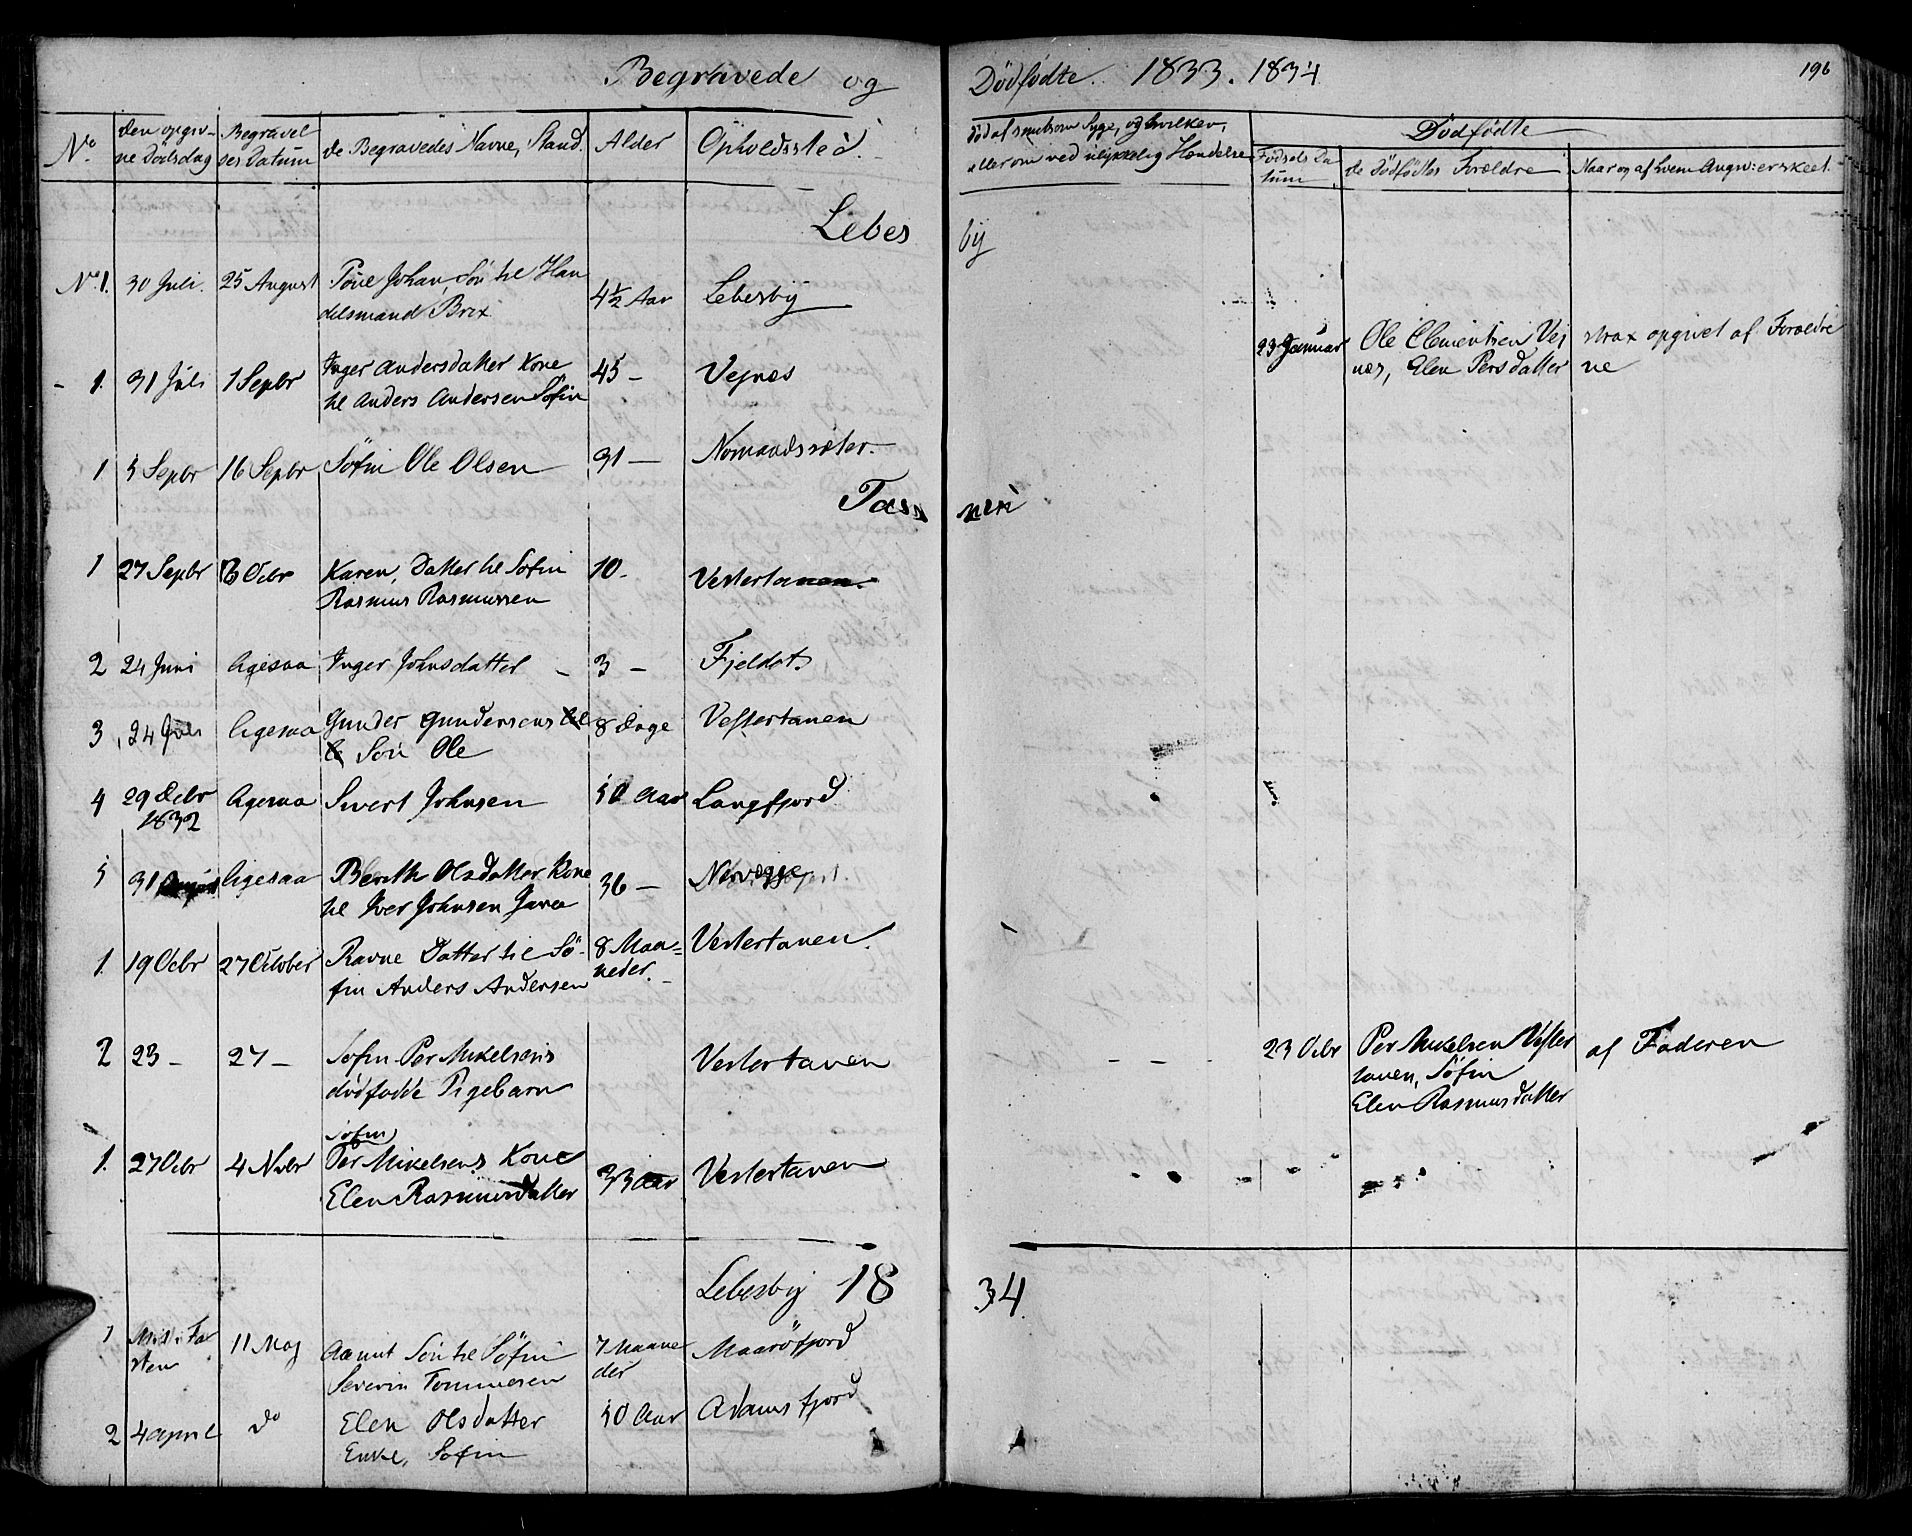 Begravede og Dødfødte. 1833. 1834
196
No.
den opgiv-
ne Dödsdag
Begravel
ses Datum
de Begravedes Navne, Stand.
Alder
Opholdssted.
død af smitsom Syge, og hvilken,
eller om ved ulykkelig Hændelse
Dødfødte
Fødsels Da
tum
de Dødfödtes Forældre
Naar og af hvem Angiv: er skeet.
Lebes by
No 1. 30 Juli. 25 August
Johan, Sön til Han
delsmand Brix
4½ Aar Lebesby
23 Januar
Ole Clementsen Vej
næs, Elen Persdatter
strax opgivet af Forældre
ne
- 1. 31 Juli 1 Sepbr
Inger Andersdatter Kone
til Anders Andersen Söfin
45 - Vejnæs
1 5 Sepbr 16 Sepbr Söfin Ole Olsen 31 -
Tan nen
1 27 Sepbr 6 Ocbr
Karen, Datter til Söfin
Rasmus Rasmussen
10 - Vestertanen.
2 24 Juni Ligesaa Inger Johnsdatter - 3 - Fjeldet.
3 24 Juli Ligesaa
Gunder Gundersens
Sön Ole
8 Dage Vestertanen
4 29 Decbr
1832
Ligesaa Sivert Johnsen 50 Aar Langfjord
5 31 Ligesaa
Bereth Olsdatter Kone
til Iver Johnsen
36 -
1. 19 Ocbr 27 October
Ravne Datter til Sö-
fin Anders Andersen
8 Maa-
neder.
Vestertanen.
2 23 - 27 -
Sofin Per Mikelsens
dödfødte Pigebarn
Vestertanen
- - - 23 Ocbr
Per Mikelsen Vester
tanen, Söfin
Elen Rasmusdatter
af Faderen
1. 27 Ocbr 4 Novbr
Sofin
Per Mikelsens Kone
Elen Rasmusdatter
33 Aar Vestertanen
Lebesby 18 34
1 Midt i Fa
sten
11 Maj
Sön til Söfin
Severin Tommesen
7 Maane
der
2 4 April do
Elen Olsdatter
Enke, Sofin
50 Aar Adamsfjord